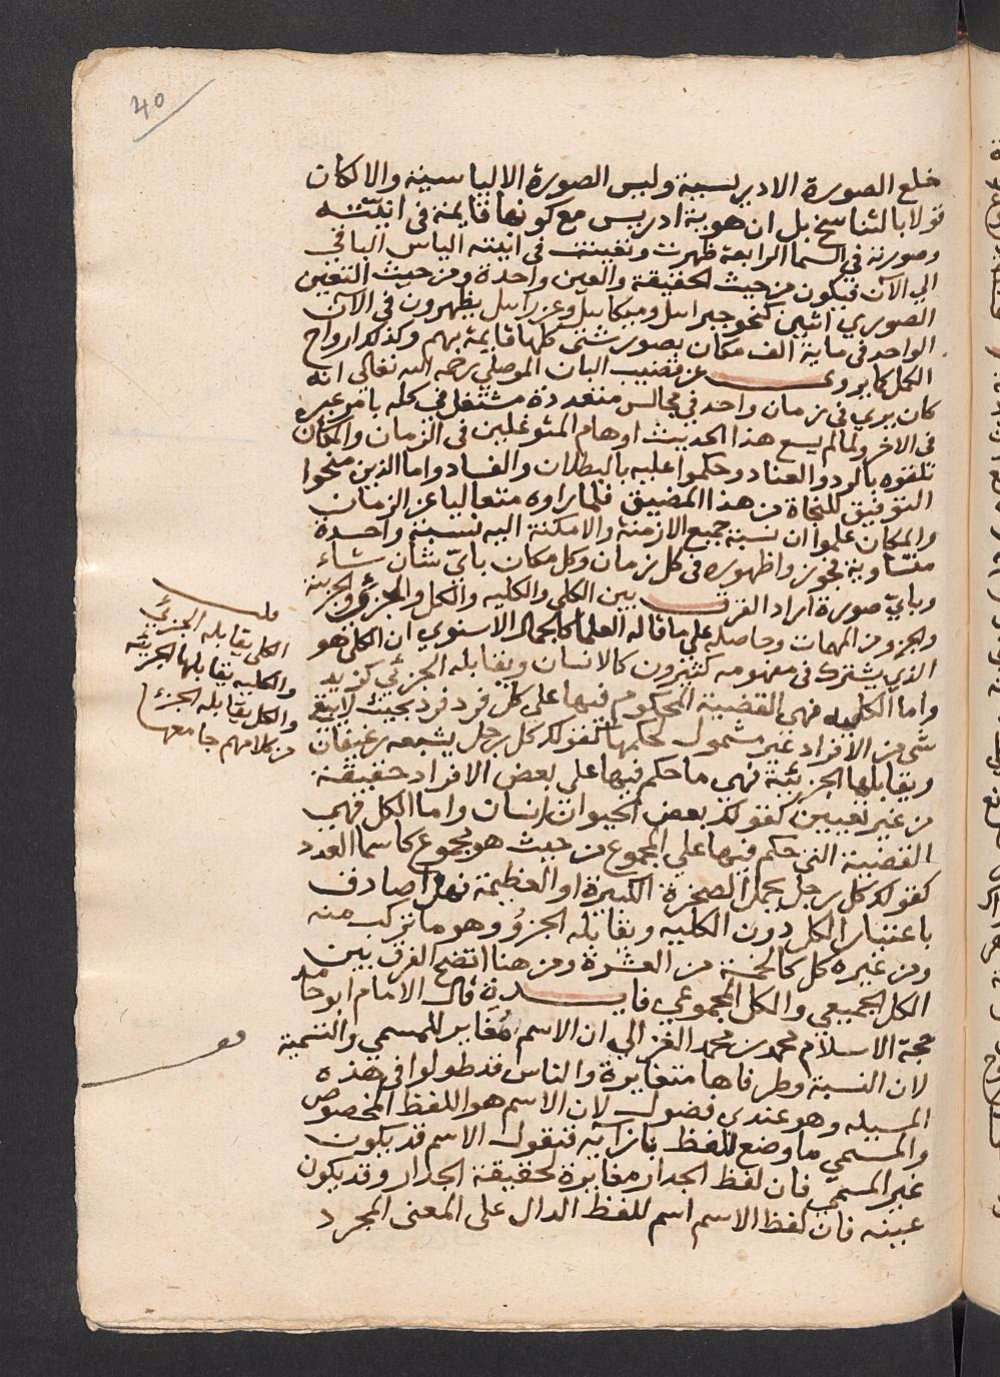 40
خلع الصورة الادريسية ولبس الصورة الالياسية والا لكان
قولا بالتناسخ بل ان هوية ادريس مع كونها قايمة في انيته
وصورته في السما الرابعة ظهرت وتعينت في انيته الياس الباقي
الي الآن فيكون من حيث الحقيقة والعين واحدة ومن حيث التعين
الصوري اثنين كنحو جبرايل وميكايل وعزرايل يظهرون في الآن
الواحد في ماية الف مكان بصور شتى كلها قايمة بهم وكذلك ارواح
الكمل كما يروى عن قضيب البان الموصلي رحمه الله تعالى انه
كان يري في زمان واحد في مجالس متعددة مشتغل في كله بامر غيره
في الاخر ولما لم يسع هذا الحديث اوهام المتوغلين في الزمان والمكان
تلقوه بالرد والعناد وحكموا عليه بالبطلان والفساد واما الذين منحوا
التوفيق للنجاة من هذا المضيق فلما راوه متعاليا عن الزمان
والمكان علموا ان نسبة جميع الازمنة والامكنة اليه نسبة واحدة
متساوية فجوزوا ظهوره في كل زمان وكل مكان باي شان شاء
وباي صورة اراد الفرق بين الكلي والكليه والكل والجزئي والجزئية
والجزء من المهمات وحاصله علي ما قاله العلما كالجمال الاسنوي ان الكلي هو
الذي يشترك في مفهومه كثيرون كالانسان ويقابله الجزئي كزيد
واما الكليه فهي القضية المحكوم فيها على كل فرد فرد بحيث لا يبقى
شي من الافراد غير مشمول لحكمها كقولك كل رجل يشبعه رغيفان
ويقابلها الجزئية فهي ما حكم فيها على بعض الافراد حقيقة
من غير تعيين كقولك بعض الحيوان انسان واما الكل فهي
القضية التي حكم فيها علي المجموع من حيث هو مجموع كاسما العدد
كقولك كل رجل يحمل الصخرة الكبيرة او العظيمة فهذا صادق
باعتبار الكل دون الكليه ويقابله الجزؤ وهو ما تركب منه
ومن غيره كل كالخمسة من العشرة ومن هنا اتضح الفرق بين
الكل الجميعي والكل المجموعي فايدة قال الامام ابو حامد
حجة الاسلام محمد بن محمد الغزالي ان الاسم مُغاير للمسمي والتسمية
لان النسبة وطرفاها متغايرة والناس قد طولوا في هذه
المسيله وهو عندي فضول لان الاسم هو اللفظ المخصوص
والمسمي ما وضع للفظ بازآيه فنقول الاسم قد يكون
غير المسمي فان لفظ الجدار مغايرة لحقيقة الجدار وقد يكون
عينه فان لفظ الاسم اسم للفظ الدال على المعنى المجرد
الكلي يقابله الجزئي
والكليه يقابلها الجزئية
والكل يقابله الجزء
من كلامهم جامعها